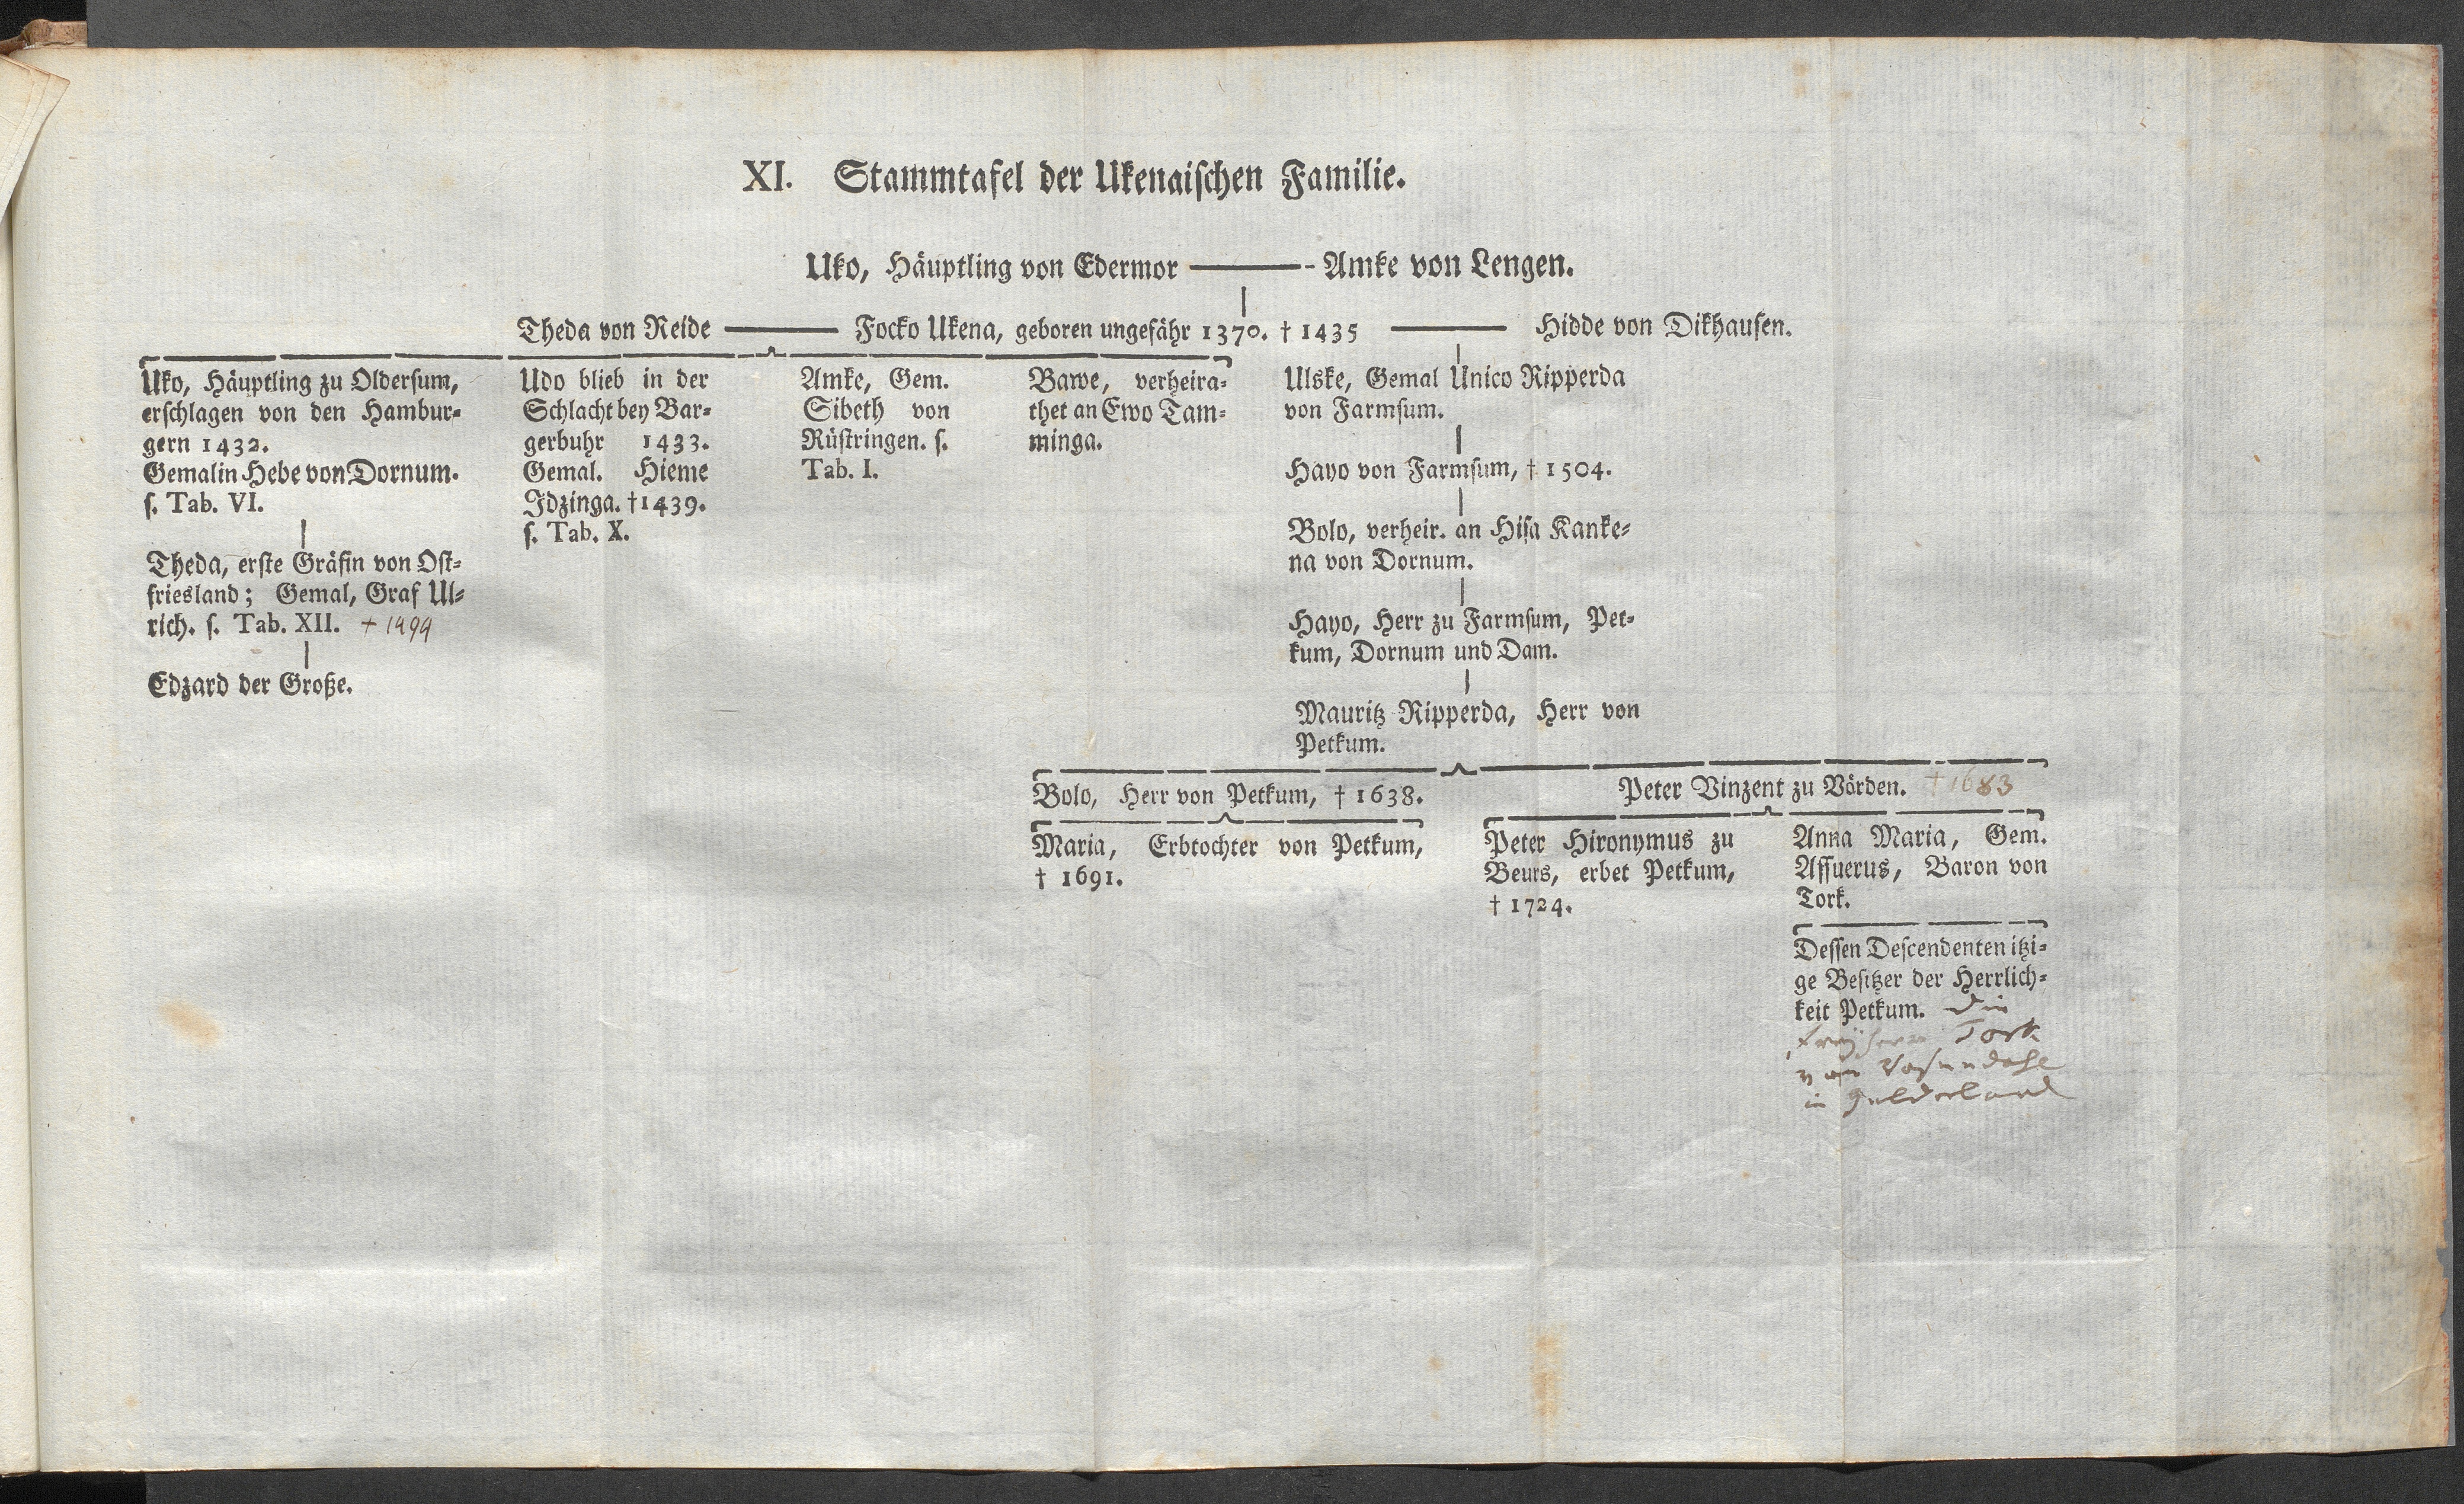 XI. Stammtafel der Ukenaischen Familie.
Uko, Häuptling von Edermor ——— Amke von Lengen.
Theda von Reide ——— Focko Ukena, geboren ungefähr 1370. † 1435 ——— Hidde von Dikhausen.
Uko, Häuptling zu Oldersum,
erschlagen von den Hambur-
gern 1432.
Gemalin Hebe von Dornum.
s. Tab. VI.
Theda, erste Gräfin von Ost-
friesland; Gemal, Graf Ul-
rich. s. Tab. XII. † 1494
Edzard der Große.
Udo blieb in der
Schlacht bey Bar-
gerbuhr 1433.
Gemal. Hieme
Idzinga. †1439.
s. Tab. X.
Amke, Gem.
Sibeth von
Rüstringen. s.
Tab. I.
Bawe, verheira-
thet an Ewo Tam-
minga.
Ulske, Gemal Unico Ripperda
von Farmsum.
Hayo von Farmsum, † 1504.
Bolo, verheir. an Hisa Kanke-
na von Dornum.
Hayo, Herr zu Farmsum, Pet-
kum, Dornum und Dam.
Mauritz Ripperda, Herr von
Petkum.
Bolo, Herr von Petkum, † 1638.
Maria, Erbtochter von Petkum,
† 1691.
Peter Vinzent zu Vörden. † 1683
Peter Hironymus zu
Beurs, erbet Petkum,
† 1724.
Anna Maria, Gem.
Assuerus, Baron von
Tork.
Dessen Descendenten itzi-
ge Besitzer der Herrlich-
keit Petkum. Die
Freyherrn Tork
von
in Gelderland